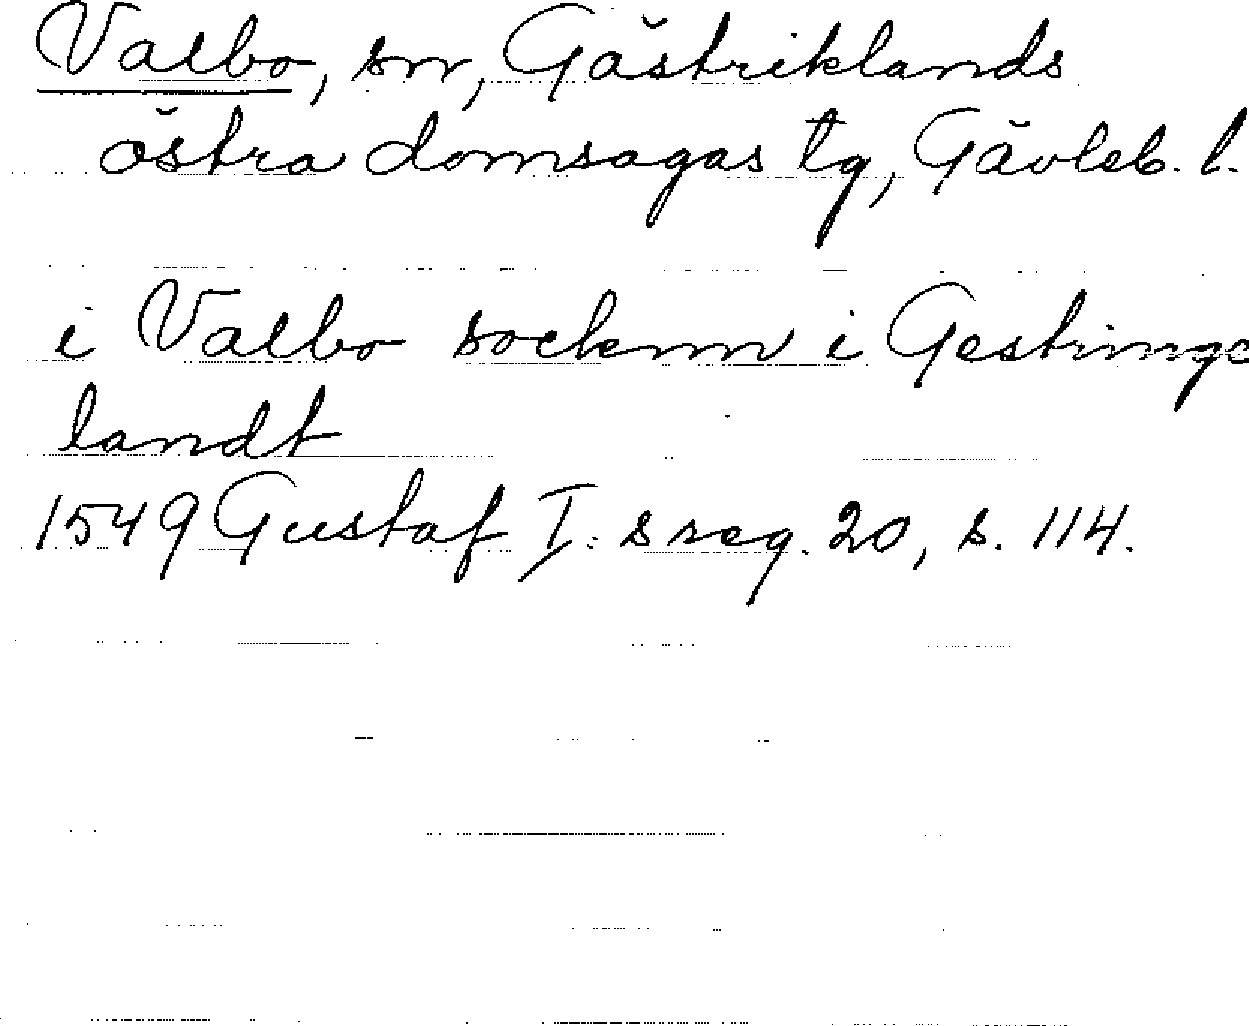 Valbo, sn, Gästriklands
östra domsagas tg, Gävleb. l.
i Valbo sockenn i Gestringe
landt
1549 Gustaf I:s reg. 20, s. 114.